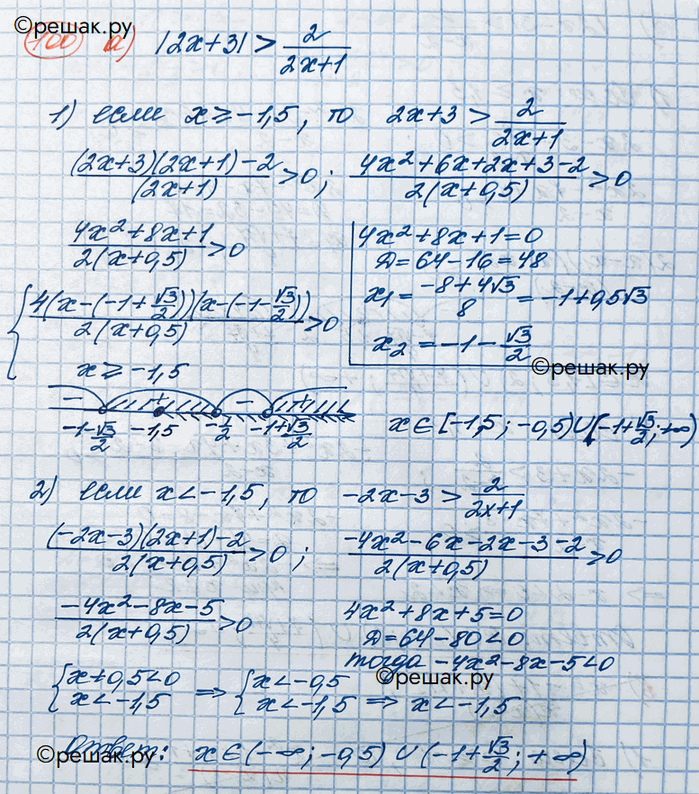 ©решак.ру
100 а) |2x+3| > 2/(2x+1)
1) если x ≥ -1,5, то 2x+3 > 2/(2x+1)
((2x+3)(2x+1)-2)/(2x+1) > 0; (4x²+6x+2x+3-2)/(2(x+0,5)) > 0
(4x²+8x+1)/(2(x+0,5)) > 0
4x²+8x+1=0
Д=64-16=48
x₁ = (-8+4√3)/8 = -1+0,5√3
x₂ = -1-√3/2
©решак.ру
{ 4(x-(-1+√3/2))(x-(-1-√3/2))/(2(x+0,5)) > 0
x ≥ -1,5
- + - +
-1-√3/2 -1,5 -1/2 -1+√3/2
x ∈ [-1,5; -0,5) ∪ (-1+√3/2; +∞)
2) если x < -1,5, то -2x-3 > 2/(2x+1)
((-2x-3)(2x+1)-2)/(2(x+0,5)) > 0; (-4x²-6x-2x-3-2)/(2(x+0,5)) > 0
(-4x²-8x-5)/(2(x+0,5)) > 0
4x²+8x+5=0
Д=64-80<0
тогда -4x²-8x-5<0
©решак.ру
{ x+0,5<0 ⇒ { x<-0,5
x<-1,5 x<-1,5 ⇒ x<-1,5
Ответ: x ∈ (-∞; -0,5) ∪ (-1+√3/2; +∞)
©решак.ру